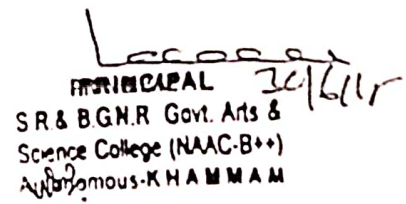 PRINCIPAL
S.R & B.G.N.R Govt. Arts &
Science College (NAAC-B++)
Autonomous-KHAMMAM